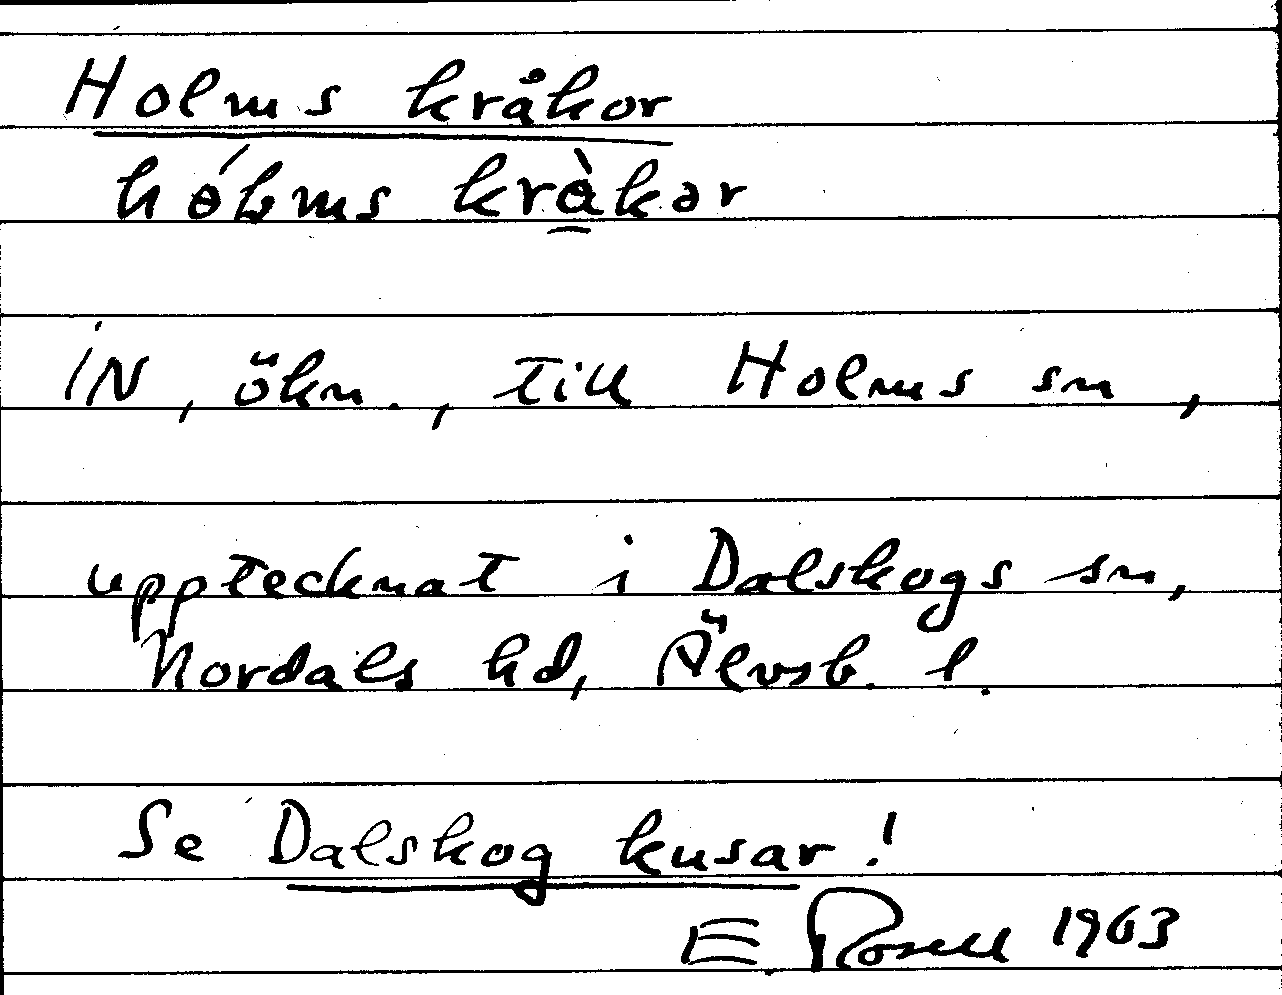 Holms kråkor
hólms kràkər
IN, ökn., till Holms sn,
upptecknat i Dalskogs sn,
Nordals hd, Älvsb. l.
Se Dalskog kusar!
E. Rosell 1963